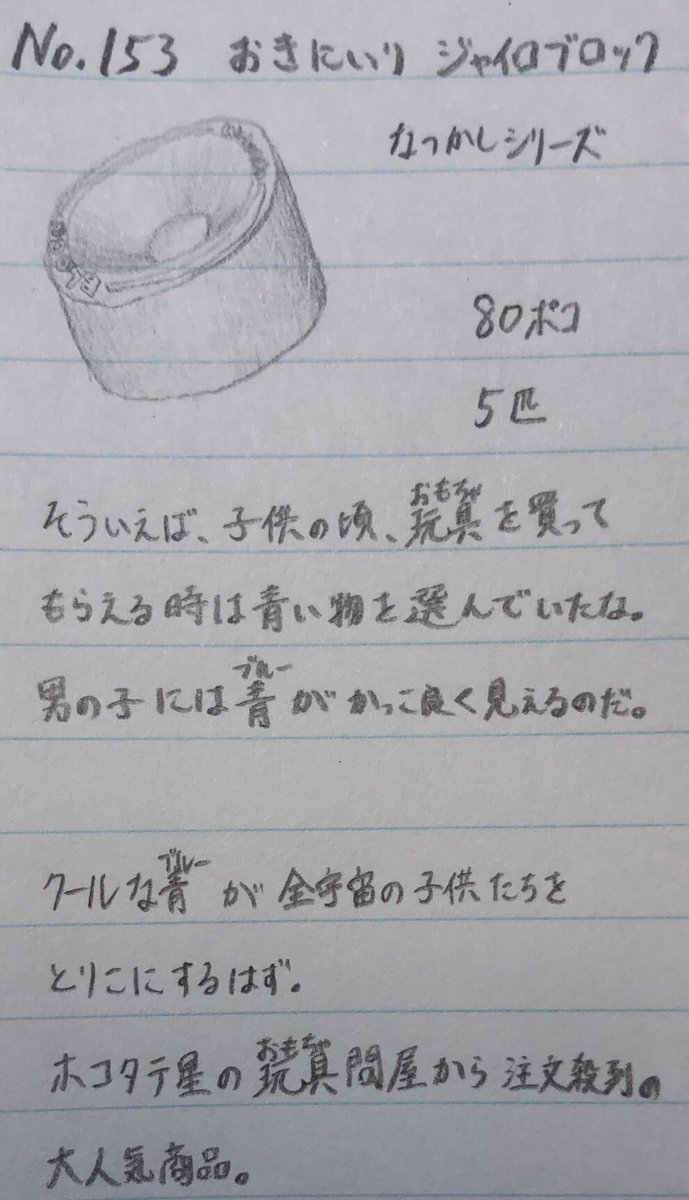 No.153 おきにいり ジャイロブロック
なつかしシリーズ
80ポコ
5匹
そういえば、子供の頃、玩具を買って
おもちゃ
もらえる時は青い物を選んでいたな。
男の子には青がかっこ良く見えるのだ。
ブルー
クールな青が全宇宙の子供たちを
ブルー
とりこにするはず。
ホコタテ星の玩具問屋から注文殺到の
おもちゃ
大人気商品。